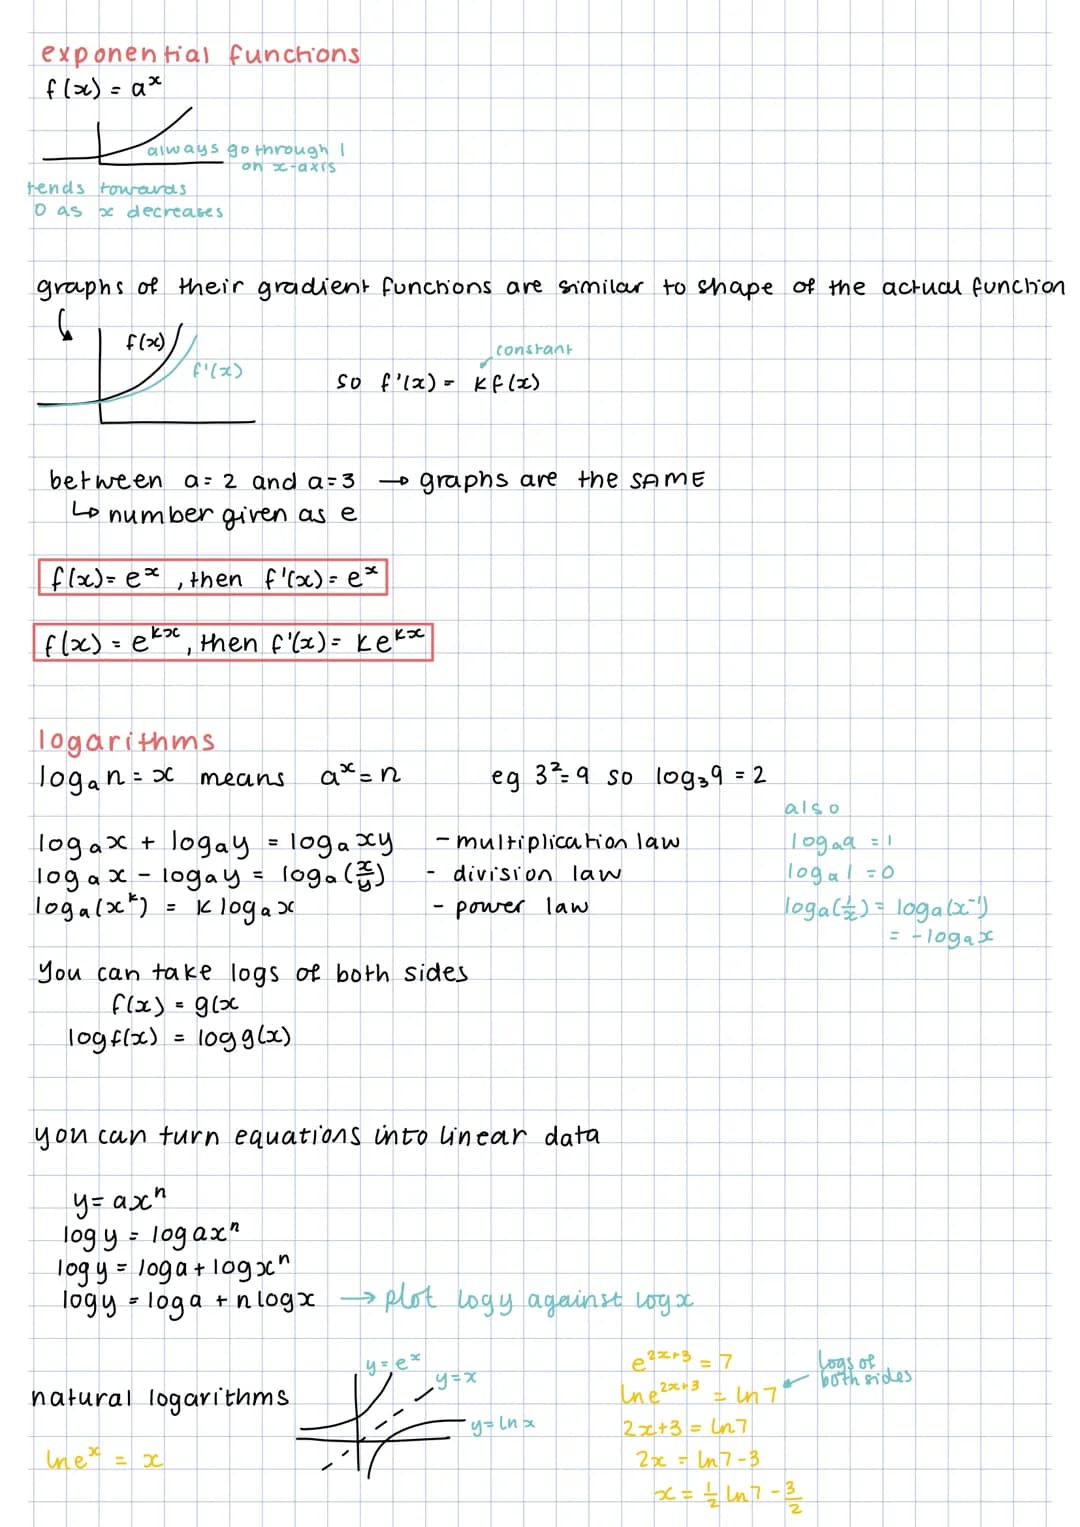 exponential functions
f(x) = aˣ
always go through 1
on x-axis
tends towards
0 as x decreases
graphs of their gradient functions are similar to shape of the actual function
f(x)
f'(x)
constant
so f'(x) = kf(x)
between a=2 and a=3 → graphs are the SAME
↳ number given as e
f(x) = eˣ, then f'(x) = eˣ
f(x) = e^{kx}, then f'(x) = ke^{kx}
logarithms
logₐn = x means aˣ = n eg 3² = 9 so log₃9 = 2
also
logₐx + logₐy = logₐxy - multiplication law
logₐx - logₐy = logₐ(x/y) - division law
logₐ(xᵏ) = k logₐx - power law
logₐa = 1
logₐ1 = 0
logₐ(1/x) = logₐ(x⁻¹)
= -logₐx
You can take logs of both sides
f(x) = g(x
logf(x) = logg(x)
you can turn equations into linear data
y = axⁿ
logy = logaxⁿ
logy = loga + logxⁿ
logy = loga + nlogx → plot logy against logx
natural logarithms
lneˣ = x
y = eˣ
y = x
y = lnx
e^{2x+3} = 7
lne^{2x+3} = ln7
logs of
both sides
2x+3 = ln7
2x = ln7 - 3
x = ½ ln7 - 3/2